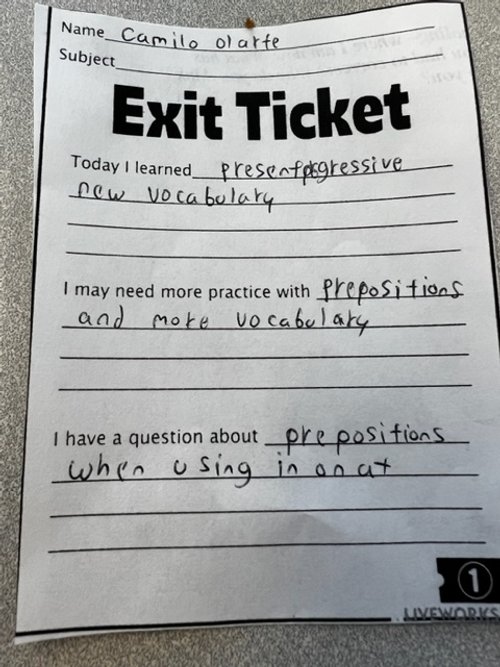 Name Camilo olarte
Subject
Exit Ticket
Today I learned present progressive
new vocabulary
I may need more practice with prepositions
and more vocabulary
I have a question about prepositions
when using in on at
1
LIVEWORKS